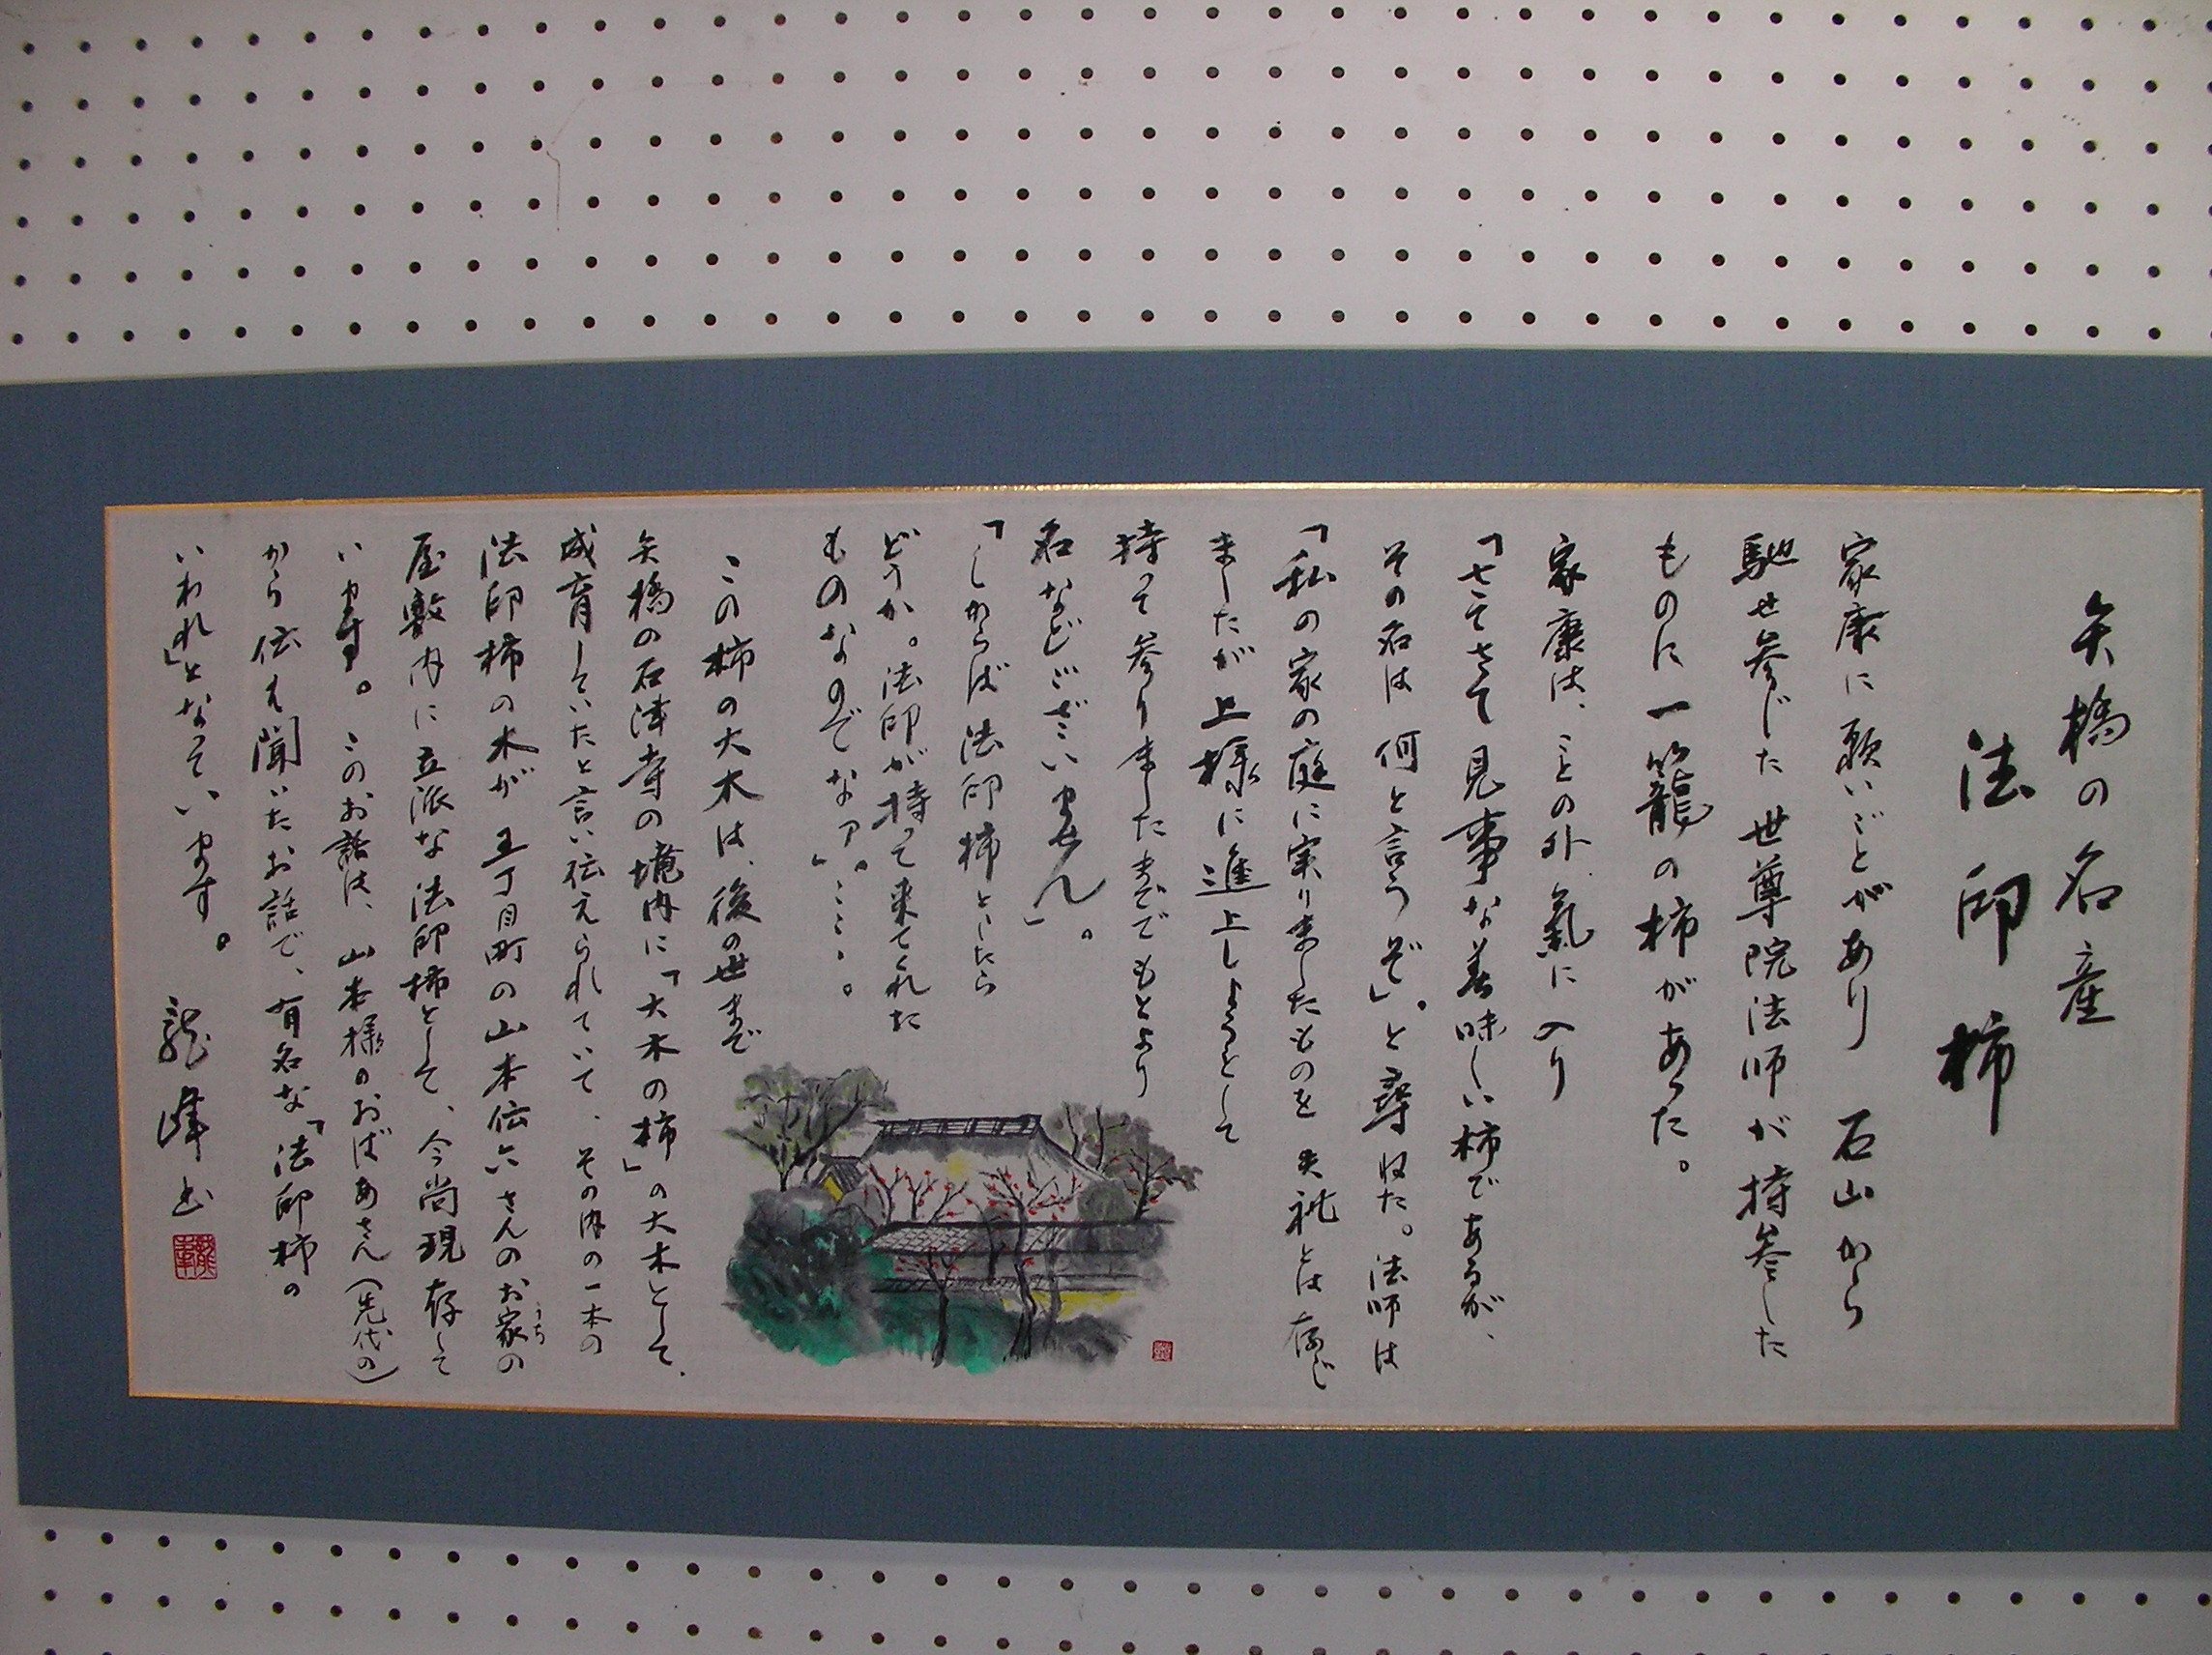 矢橋の名産
法印柿
家康に願いごとがあり 石山から
馳せ参じた 世尊院法師が持参した
ものに一籠の柿があった。
家康は、ことの外 氣に入り
「さてさて見事な美味しい柿であるが、
その名は何と言うぞ」。と尋ねた。法師は
「私の家の庭に実りましたものを 失礼とは存じ
ましたが 上様に進上しようとして
持って参りましたまでもとより
名などございません」。
「しからば 法印柿としたら
どうか。法印が持って来てくれた
ものなのでなァ。」…。
この柿の大木は、後の世まで
矢橋の石津寺の境内に「大木の柿」の大木として、
成育していたと言い伝えられていて、その内の一本の
法印柿の木が 五丁目町の山本伝六さんのお家の
うち
屋敷内に立派な法印柿として、今尚現存して
います。このお話は、山本様のおばあさん(先代の)
から伝え聞いたお話で、有名な「法印柿の
いわれ」となっています。
龍峰 書